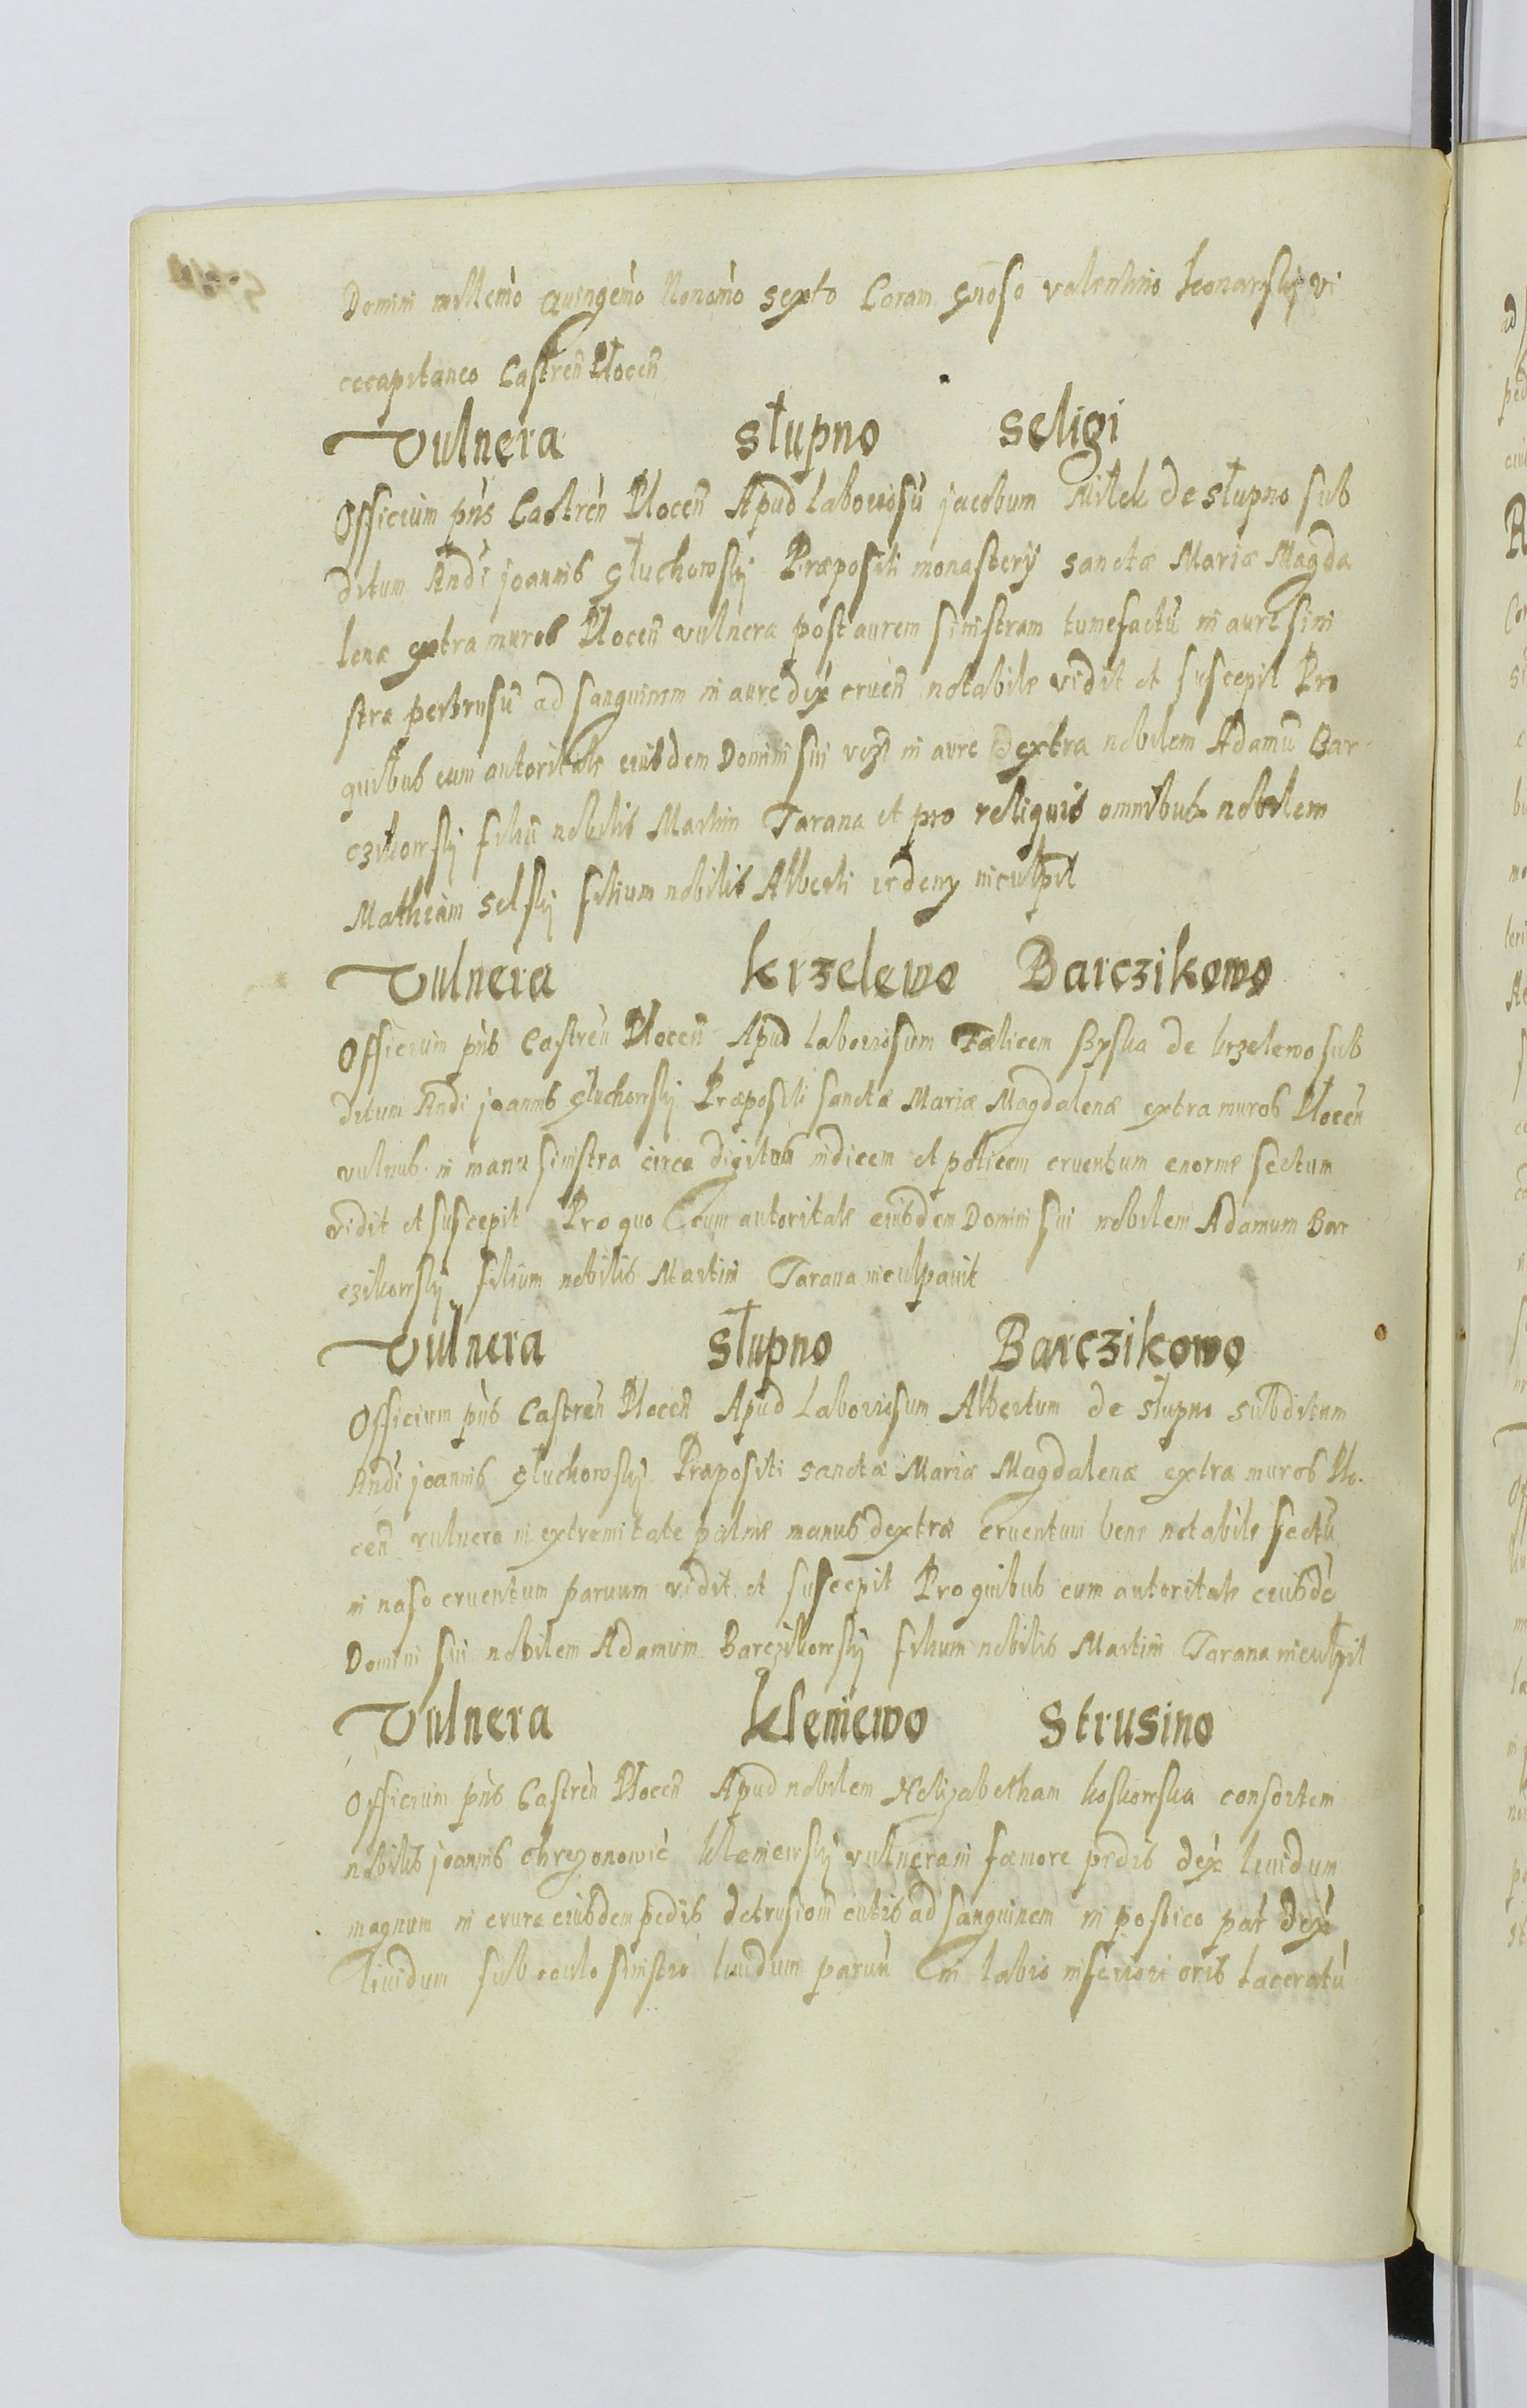 Domini millemo Quingemo Nonamo sexto Coram gnoso valentino konarskj vi
cecapitaneo Castren Plocen
Vulnera słupno seligi
Officium pns Castren Plocen Apud laboriosu jacobum Miłek de słupno sub
ditum Rndi joannis głuchowskj Præpositi monasterij sanctæ Mariæ Magda
lenæ extra muros Plocen vulnera post aurem sinistram tumefactu in aure sini
stra pertusu ad sanguinem in aure dex cruen notabile vidit et suscepit Pro
quibus cum autoritate eiusdem Domini sui in aure dextra nobilem Adamu Bar
czikowskj filiu nobilis Martini Tarana et pro reliquis omnibus nobilem
Mathiam selskj filium nobilis Alberti inculpit
Vulnera krzelewo Barczikowo
Officium pns Castren Plocen Apud laboriosum Fælicem de krzelewo sub
ditum Rndi joannis głuchowskj Præpositi sanctæ Mariæ Magdalenæ extra muros Plocen
vulnus in manu sinistra circa digitum indicem et policem cruentum enorme sectum
vidit et suscepit Pro quo cum autoritate eiusdem Domini sui nobilem Adamum Bar
czikowskj filium nobilis Martini Tarana inculpauit
Vulnera słupno Barczikowo
Officium pns Castren Plocen Apud Laboriosum Albertum de słupno subditum
Rndi joannis głuchowskj Præpositi sanctæ Mariæ Magdalenæ extra muros Plo.
cen vulnera in extremitate palme manus dextræ cruentum bene notabile sectu
in naso cruentum paruum vidit et suscepit Pro quibus cum autoritate eiusde
Domini sui nobilem Adamum Barczikowskj filium nobilis Martini Tarana inculpit
Vulnera kleniewo strusino
Officium pns Castren Plocen Apud nobilem Helizabetham koskowska consortem
nobilis joannis kleniewskj vulnera in fæmore pedis dex liuidum
magnum in crure eiusdem pedis detrusiom cutis ad sanguinem in postico par dex
liuidum sub oculo sinistro liuidum paruu in labio inferiori oris laceratu